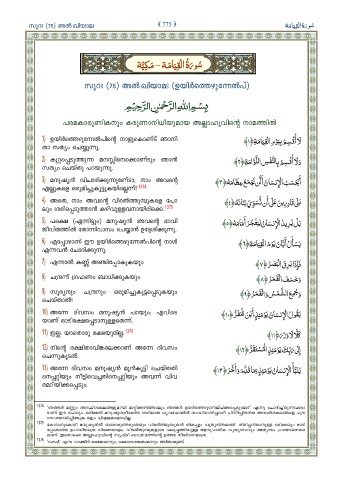 സൂറഃ (75) അൽ ഖിയാമഃ ﴾ 775 ﴿ سورة القيامة
سُورَةُ الْقِيَامَةِ - مَكِّيَّة
സൂറഃ (75) അൽ ഖിയാമഃ (ഉയിർത്തെഴുന്നേൽപ്)
بِسْمِ اللَّهِ الرَّحْمَٰنِ الرَّحِيمِ
പരമകാരുണികനും കരുണാനിധിയുമായ അല്ലാഹുവിന്റെ നാമത്തിൽ
1) ഉയിർത്തെഴുന്നേൽപിന്റെ നാളുകൊണ്ട് ഞാനി
താ സത്യം ചെയ്യുന്നു.
لَا أُقْسِمُ بِيَوْمِ الْقِيَامَةِ ﴿١﴾
2) കുറ്റപ്പെടുത്തുന്ന മനസ്സിനെക്കൊണ്ടും ഞാൻ
സത്യം ചെയ്തു പറയുന്നു.
وَلَا أُقْسِمُ بِالنَّفْسِ اللَّوَّامَةِ ﴿٢﴾
3) മനുഷ്യൻ വിചാരിക്കുന്നുണ്ടോ, നാം അവന്റെ
എല്ലുകളെ ഒരുമിച്ചുകൂട്ടുകയില്ലെന്ന്?
أَيَحْسَبُ الْإِنسَانُ أَلَّن نَّجْمَعَ عِظَامَهُ ﴿٣﴾
4) അതെ, നാം അവന്റെ വിരൽത്തുമ്പുകളെ പോ
ലും ശരിപ്പെടുത്താൻ കഴിവുള്ളവനായിരിക്കെ.
بَلَىٰ قَادِرِينَ عَلَىٰ أَن نُّسَوِّيَ بَنَانَهُ ﴿٤﴾
5) പക്ഷെ (എന്നിട്ടും) മനുഷ്യൻ അവന്റെ ഭാവി
ജീവിതത്തിൽ തോന്നിവാസം ചെയ്യാൻ ഉദ്ദേശിക്കുന്നു.
بَلْ يُرِيدُ الْإِنسَانُ لِيَفْجُرَ أَمَامَهُ ﴿٥﴾
6) എപ്പോഴാണ് ഈ ഉയിർത്തെഴുന്നേൽപിന്റെ നാൾ
എന്നവൻ ചോദിക്കുന്നു.
يَسْأَلُ أَيَّانَ يَوْمُ الْقِيَامَةِ ﴿٦﴾
7) എന്നാൽ കണ്ണ് അഞ്ചിപ്പോകുകയും
فَإِذَا بَرِقَ الْبَصَرُ ﴿٧﴾
8) ചന്ദ്രന്ന് ഗ്രഹണം ബാധിക്കുകയും
وَخَسَفَ الْقَمَرُ ﴿٨﴾
9) സൂര്യനും ചന്ദ്രനും ഒരുമിച്ചുകൂട്ടപ്പെടുകയും
ചെയ്താൽ!
وَجُمِعَ الشَّمْسُ وَالْقَمَرُ ﴿٩﴾
10) അന്നേ ദിവസം മനുഷ്യൻ പറയും; എവിടെ
യാണ് ഓടിരക്ഷപ്പെടാനുള്ളതെന്ന്.
يَقُولُ الْإِنسَانُ يَوْمَئِذٍ أَيْنَ الْمَفَرُّ ﴿١٠﴾
11) ഇല്ല. യാതൊരു രക്ഷയുമില്ല.
كَلَّا لَا وَزَرَ ﴿١١﴾
12) നിന്റെ രക്ഷിതാവിങ്കലേക്കാണ് അന്നേ ദിവസം
ചെന്നുകൂടൽ.
إِلَىٰ رَبِّكَ يَوْمَئِذٍ الْمُسْتَقَرُّ ﴿١٢﴾
13) അന്നേ ദിവസം മനുഷ്യൻ മുൻകൂട്ടി ചെയ്തതി
നെപ്പറ്റിയും നീട്ടിവെച്ചതിനെപ്പറ്റിയും അവന്ന് വിവ
രമറിയിക്കപ്പെടും.
يُنَبَّأُ الْإِنسَانُ يَوْمَئِذٍ بِمَا قَدَّمَ وَأَخَّرَ ﴿١٣﴾